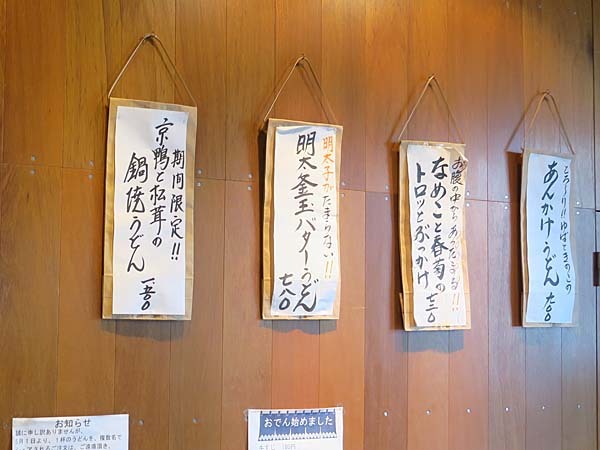 期間限定!!
京鴨と松茸の
鍋焼うどん
一五〇〇
明太子がたまらない!!
明太釜玉バターうどん
七八〇
お腹の中からあったまる!!
なめこと春菊の
トロッとぶっかけ
七三〇
とろ〜り!!ゆばときのこの
あんかけうどん
九〇〇
お知らせ
誠に申し訳ありませんが、
月1日より、1杯のうどんを、複数名で
おでん始めました